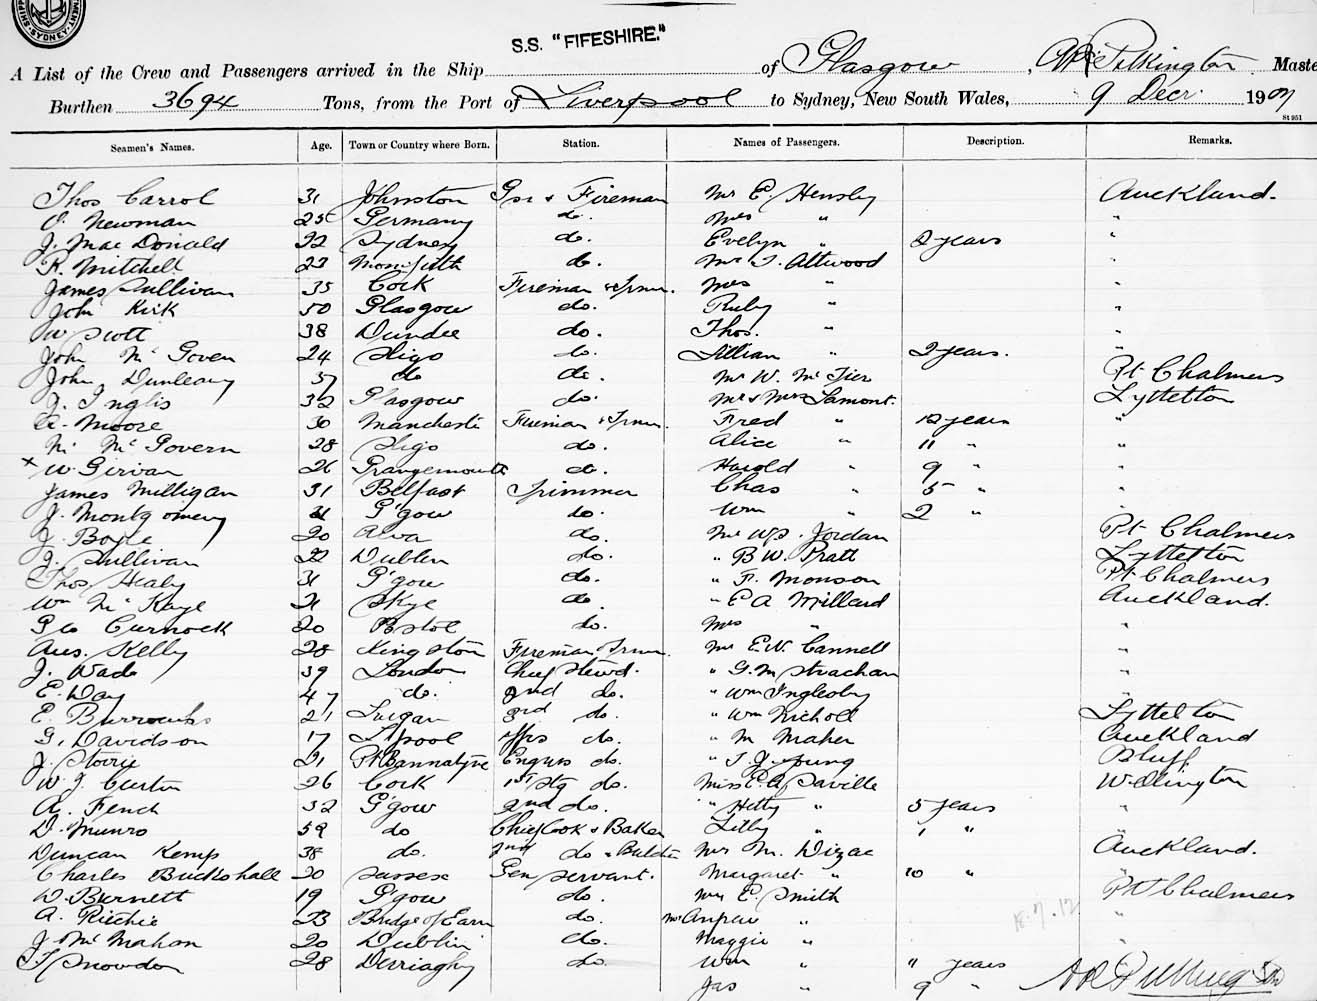 SHIPPING
DEPARTMENT, SYDNEY
S.S. "FIFESHIRE."
A List of the Crew and Passengers arrived in the Ship of Glasgow, A.R. Pilkington Maste
Burthen 3694 Tons, from the Port of Liverpool to Sydney, New South Wales, 9 Decr. 1907
St 951
Seamen's Names. Age. Town or Country where Born. Station. Names of Passengers. Description. Remarks.
Thos Carrol 31 Johnston Gsr & Fireman Mr E. Hensby Auckland.
O. Newman 25 Germany do. Mrs " "
J. Mac Donald 22 Sydney do. Evelyn " 2 years "
R. Mitchell 23 do. Mr T. Attwood "
James Sullivan 35 Cork Fireman & Trmr. Mrs " "
John Kirk 50 Glasgow do. Ruby " "
W Scott 38 Dundee do. Thos. " "
John Mc Goven 24 Sligo do. Lillian " 2 years. "
John Dunleavy 37 do do. Mr W. Mc Tier Pt Chalmers
J. Inglis 32 Glasgow do. Mr & Mrs Lamont. Lyttelton
A. Moore 30 Manchester Fireman & Trmr. Fred " 12 years "
M. Mc Govern 28 Sligo do. Alice " 11 " "
x W. Girvan 26 Grangemouth do. Harold " 9 " "
James Milligan 31 Belfast Trimmer Chas " 5 " "
J. Montgomery 21 G'gow do. Wm " 2 " "
J. Boyle 20 Alva do. Mr W.S. Jordan Pt Chalmers
J. Sullivan 22 Dublin do. " B W. Pratt Lyttelton
Thos. Healy 31 G'gow do. " F. Monson Pt Chalmers
Wm Mc Kaye 21 Skye do. " E A Millard Auckland.
Geo Curnock 20 Bstol do. Mrs " "
Aus. Kelly 28 Kingston Fireman Trmr. Mr E.W. Cannell "
J. Wade 39 London Chief Stewd. " G.M Strachan "
E. Day 47 do. 2nd do. " Wm Ingleby "
E. Burrows 21 Lurgan 3rd do. " Wm Nicholl Lyttelton
G. Davidson 17 L'pool offrs do. " M Maher Auckland
J. Storie 21 Pt Bannatyne Engnrs do. " T. J. Young Bluff
W. J. Curtin 26 Cork 1st Stg do. Miss E. A. Saville Wellington
A. Fench 32 G'gow 2nd do. " Hetty " 5 years "
D. Munro 59 do Chief Cook & Baker Lilly " 1 " "
Duncan Kemp 38 do. 2nd do & Butcher Mrs M. Dizac Auckland.
Charles Buckshall 20 Sussex Gen Servant. Margaret " 10 "
D. Burnett 19 G'gow do. Mrs E. Smith Pt Chalmers
A. Ritchie 23 Bridge of Earn do. "
J Mc Mahon 20 Dublin do. Maggie " "
T Snowdon 28 Derriaghy do. Wm " 11 years
Jas " 9 "
18.7.12
A R Pilkington